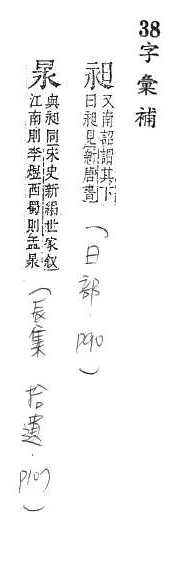 38字彙補
昶 又南詔謂其下
曰昶見新唐書
(日部 p90)
㫤 與昶同宋史新編世家敘
江南則李煜西蜀則孟㫤
(辰集 拾遺 p107)